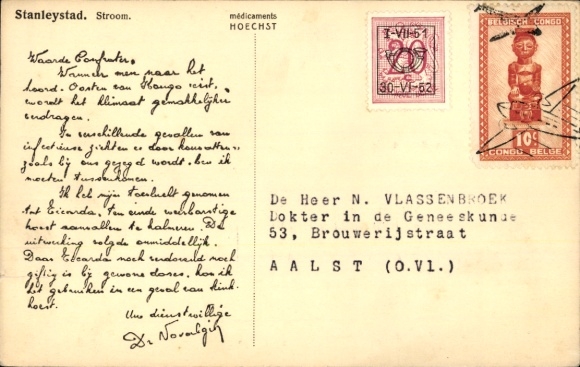 Stanleystad. Stroom.
médicaments
HOECHST
Waarde Confrater,
Wanneer men naar het
Noord-Oosten van Kongo reist,
wordt het klimaat gemakkelijker
verdragen.
In verschillende gevallen van
infectieuse ziekten en door
zoals bij ons gezegd wordt, ben ik
moeten tussenkomen.
Ik heb mijn toevlucht genomen
tot Ticarda, ten einde weerbarstige
hoest aanvallen te kalmeren. De
uitwerking volgde onmiddellijk.
Daar Ticarda noch verdovend noch
giftig is bij gewone doses, kon ik
dit gebruiken in een geval van kink-
hoest.
Uw dienstwillige
Dr
I-VII-51
20
30-VI-52
BELGISCH CONGO
10c
CONGO BELGE
De Heer N. VLASSENBROEK
Dokter in de Geneeskunde
53, Brouwerijstraat
AALST (O.Vl.)